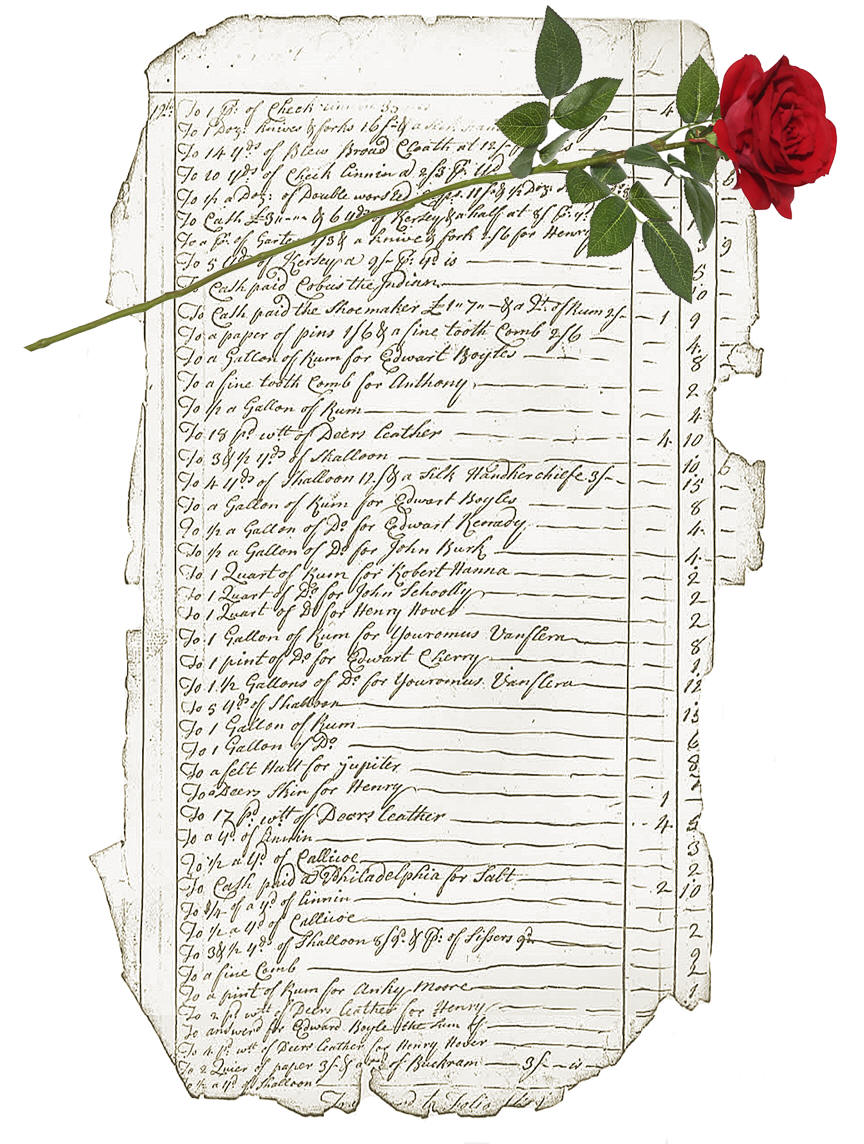 £
12th To 1 Ps. of Check linnin 4
To 1 Doz: knives & forks 16/- & a
To 14 yds of Blew Broad Cloath at 12/-
To 20 yds of Check linnin a 2/3 Pr. yd
To ½ a Doz: of Double worsted Caps 11/- & ½ Doz:
To Cash £3:"-"- & 6 yds of Kersey & a half at 8/ Pr. yd
To a Pr. of Garters 1/3 & a knive & fork 2/6 for Henry 9
To 5 yds of Kersey a 9/- Pr. yd is 5
To Cash paid Cobus the Indian 10
To Cash paid the Shoemaker £1"7"- & a Qt. of Rum 2/- 1 9
To a paper of pins 1/6 & a fine tooth Comb 2/6 4
To a Gallon of Rum for Edwart Boyles 8
To a fine tooth Comb for Anthony 2
To ½ a Gallon of Rum 4
To 18 pd wtt of Deers leather 4 10
To 3 & ½ yds of Shalloon 10
To 4 yds of Shalloon 12/ & a Silk Handkerchiefe 3/- 15
To a Gallon of Rum for Edwart Boyles 8
To ½ a Gallon of Do for Edwart Kenady 4
To ½ a Gallon of Do for John Burk 4
To 1 Quart of Rum for Robert Hanna 2
To 1 Quart of Do for John Schoolly 2
To 1 Quart of Do for Henry Hover 2
To 1 Gallon of Rum for Youromus Vanflera 8
To 1 pint of Do for Edwart Cherry 1
To 1 ½ Gallons of Do for Youromus Vanflera 12
To 5 yds of Shalloon 15
To 1 Gallon of Rum
To 1 Gallon of Do
To a felt Hatt for Jupiter
To a Deers Skin for Henry 1
To 17 pd wtt of Deers leather 4 5
To a yd of linnin 3
To ½ a yd of Callicoe 2
To Cash paid a Philadelphia for Salt 2 10
To ¾ of a yd of linnin
To ½ a yd of Callicoe 2
To 3 & ½ yds of Shalloon 8/9d & Pr. of Sissers 9d 9
To a fine Comb 2
To a pint of Rum for Anky Moore 1
To 2 pd wtt of Deers leather for Henry
To answerd for Edward Boyle the sum of
To 4 pd wtt of Deers leather for Henry Hover
To 2 Quier of paper 3/- & a yd of Buckram 3/- is
To ½ a yd of Shalloon